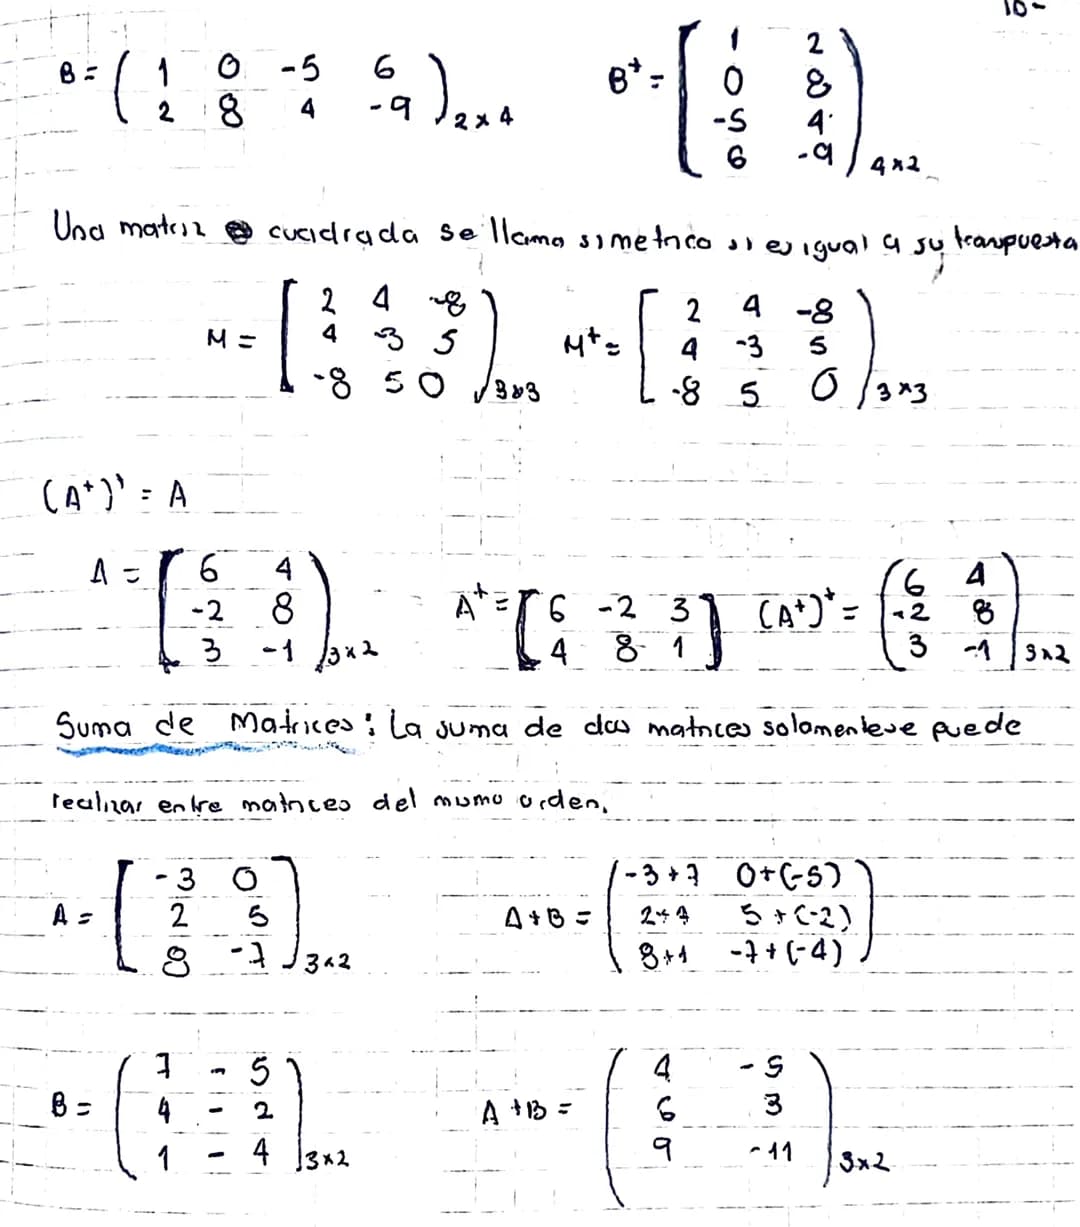 10-
B = ( 1 0 -5 6
2 8 4 -9 ) 2x4
B^t = [ 1 2
0 8
-5 4
6 -9 ) 4x2
Una matriz cuadrada se llama simetrica si es igual a su tranpuesta
M = [ 2 4 -8
4 -3 5
-8 5 0 ) 3x3
M^t = [ 2 4 -8
4 -3 5
-8 5 0 ) 3x3
(A^t)' = A
A = [ 6 4
-2 8
3 -1 ) 3x2
A^t = [ 6 -2 3
4 8 1 ]
(A^t)^t = ( 6 4
-2 8
3 -1 ) 3x2
Suma de Matrices: La suma de dos matrices solamente se puede
realizar entre matrices del mismo orden.
A = [ -3 0
2 5
8 -7 ] 3x2
A+B = ( -3+7 0+(-5)
2+4 5+(-2)
8+1 -7+(-4) )
B = ( 7 -5
4 -2
1 -4 ) 3x2
A+B = ( 4 -5
6 3
9 -11 ) 3x2